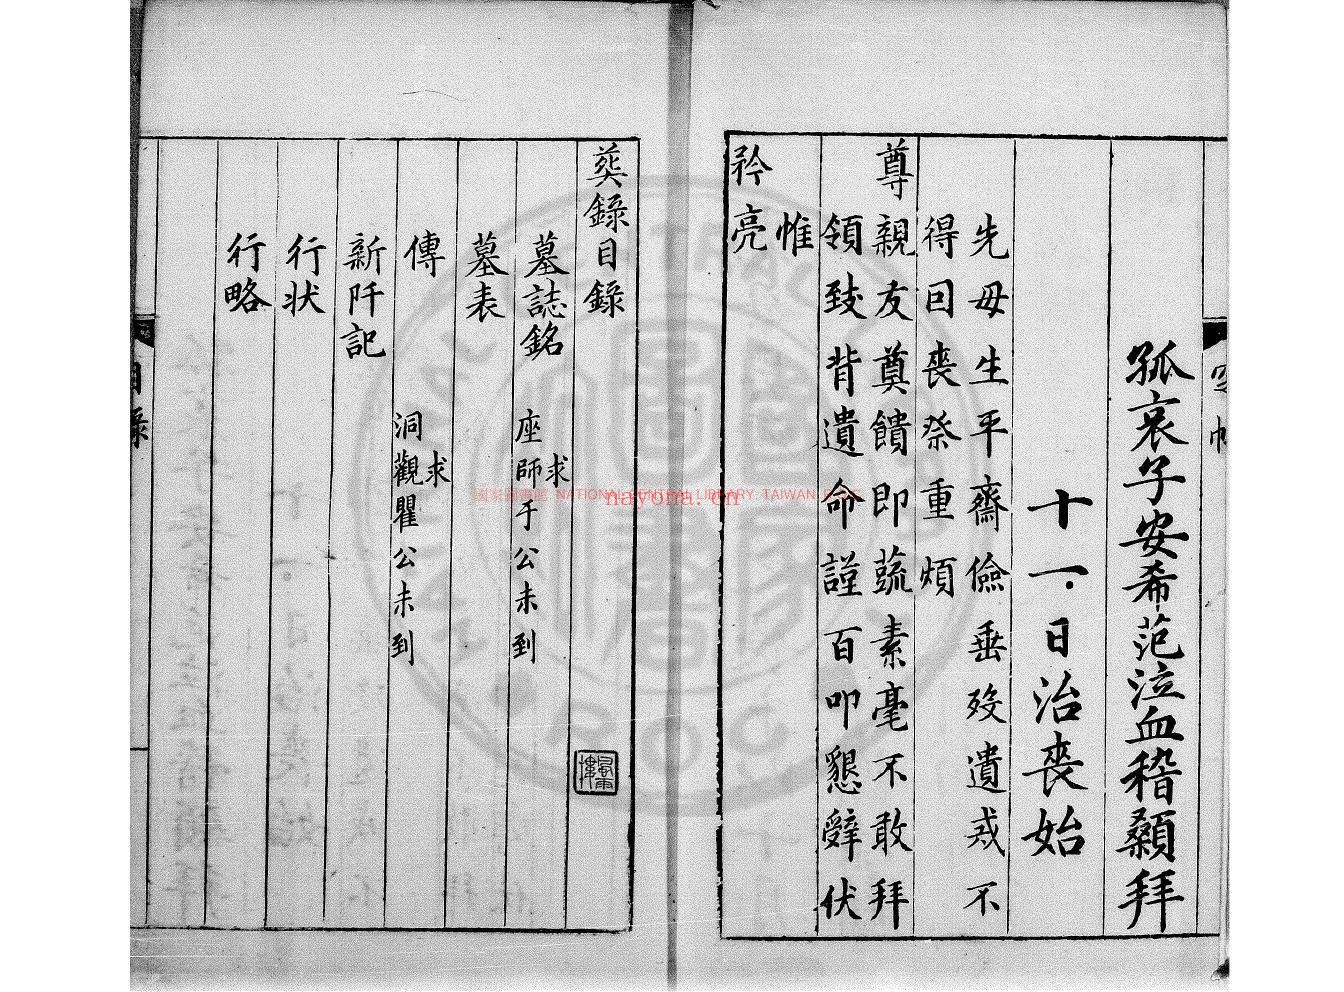 孤哀子安希范泣血稽顙拜
十一日治喪始
先母生平齋儉垂歿遺戒不
得囙喪祭重煩
尊親友奠饋即蔬素毫不敢拜
領致背遺命謹百叩懇辭伏
惟
矜亮
葬錄目錄
墓誌銘 求座師于公未到
墓表
傳 求洞觀瞿公未到
新阡記
行狀
行略
目錄
國家圖書館 NATIONAL CENTRAL LIBRARY TAIWAN
nayona.cn